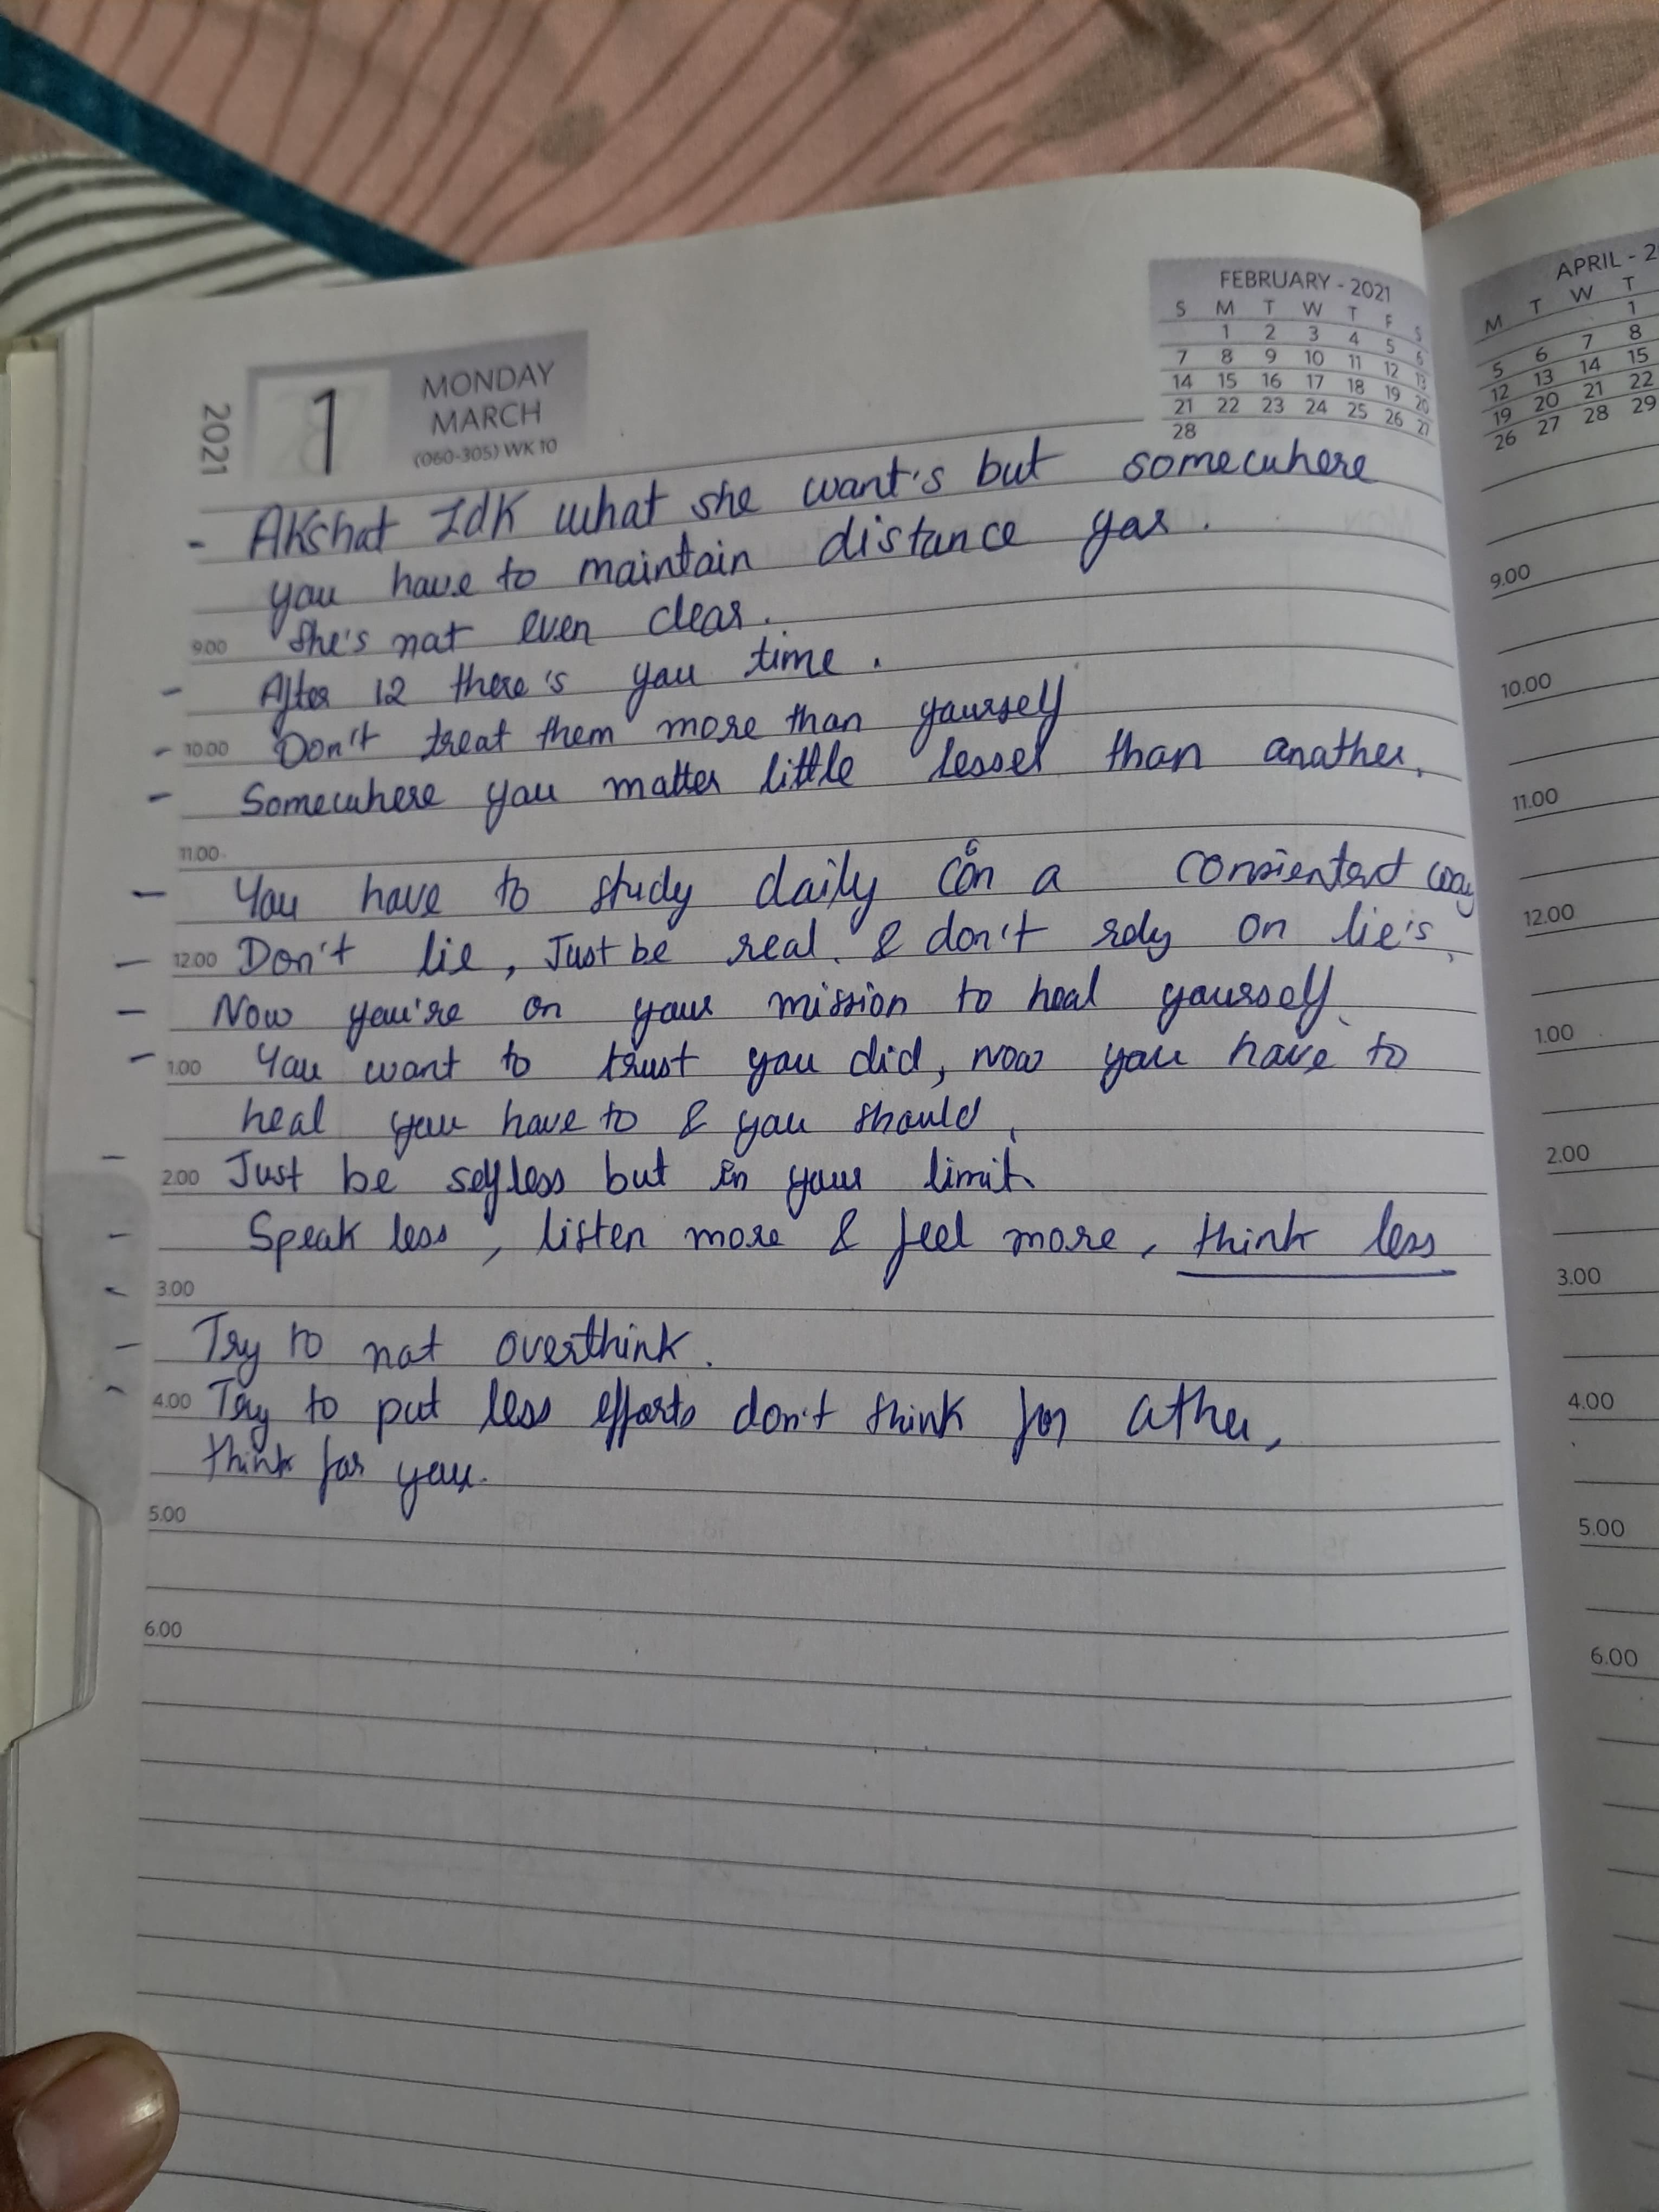 2021
1
MONDAY
MARCH
(060-305) WK 10
FEBRUARY - 2021
S M T W T F S
1 2 3 4 5 6
7 8 9 10 11 12 13
14 15 16 17 18 19 20
21 22 23 24 25 26 27
28
- Akshat Idk what she want's but somewhere
you have to maintain distance yar.
9.00 She's not even clear.
- After 12 there's you time.
- 10.00 Don't treat them more than yourself
- Somewhere you matter little lesser than another.
11.00
- You have to study daily on a way
- 12.00 Don't lie, Just be real. & don't rely on lie's.
- Now you're on your mission to heal yourself.
- 1.00 You want to trust you did, now you have to
heal you have to & you should.
- 2.00 Just be selfless but in your limit.
- Speak less, listen more & feel more, think less
- 3.00
- Try to not overthink.
- 4.00 Try to put less efforts don't think for other,
think for you.
5.00
6.00
APRIL - 2
M T W T
1
5 6 7 8
12 13 14 15
19 20 21 22
26 27 28 29
9.00
10.00
11.00
12.00
1.00
2.00
3.00
4.00
5.00
6.00